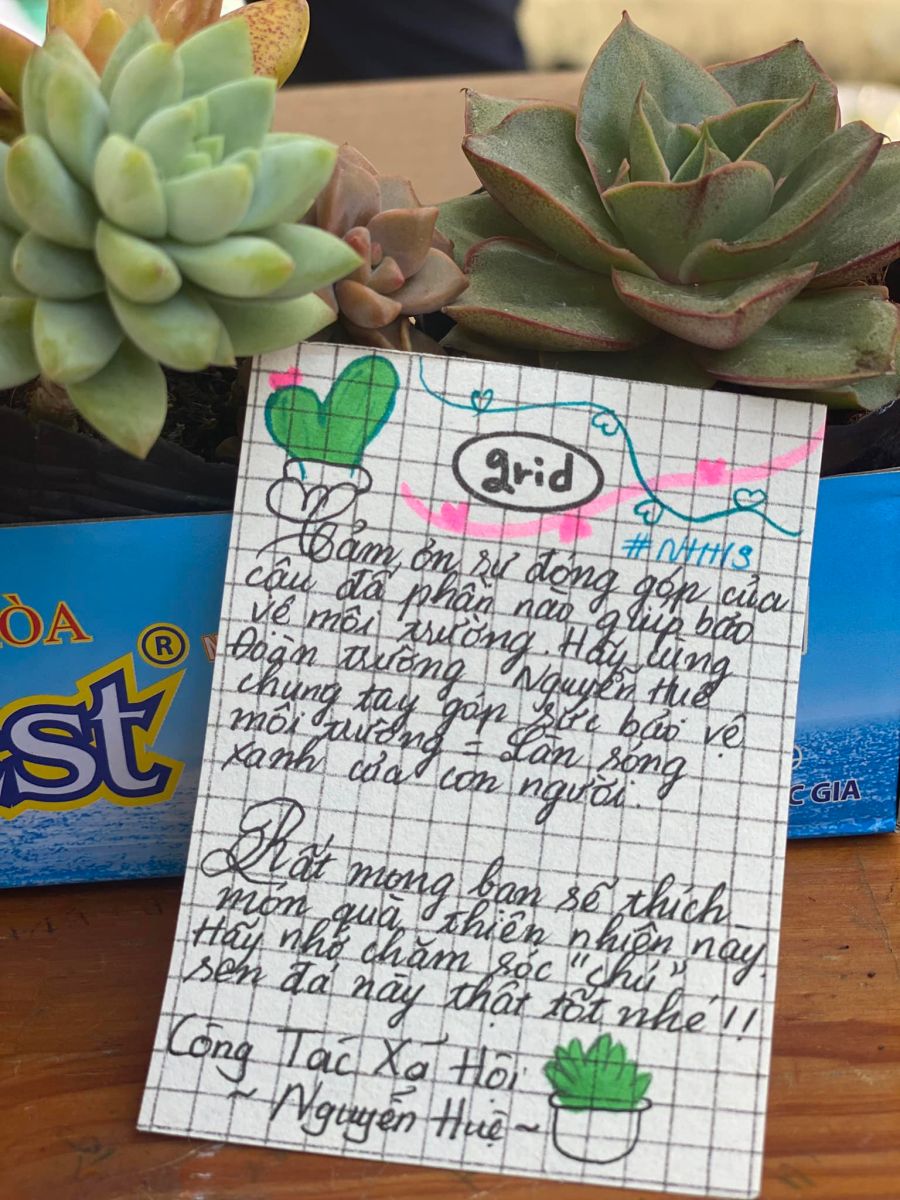 grid
#NHHS
Cảm ơn sự đóng góp của
cậu đã phần nào giúp bảo
vệ môi trường. Hãy cùng
Đoàn trường Nguyễn Huệ
chung tay góp sức bảo vệ
môi trường = Làn sóng
xanh của con người.
Rất mong bạn sẽ thích
món quà thiên nhiên này.
Hãy nhớ chăm sóc "chú"
sen đá này thật tốt nhé!!
Công Tác Xã Hội
~ Nguyễn Huệ ~
HÒA
st ®
C GIA